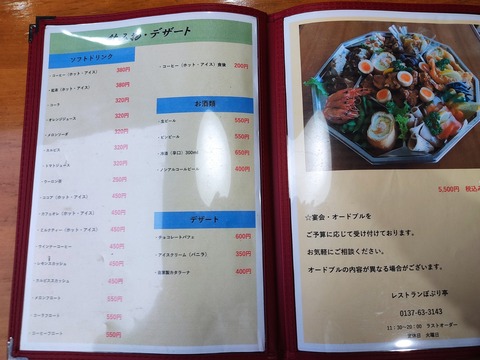 ・デザート
ソフトドリンク
・コーヒー（ホット・アイス） 380円
・紅茶（ホット・アイス） 380円
・コーラ 320円
・オレンジジュース 320円
・メロンソーダ 320円
・カルピス 320円
・トマトジュース 350円
・ウーロン茶 350円
・ココア（ホット・アイス） 450円
・カフェオレ（ホット・アイス） 450円
・ミルクティー（ホット・アイス） 450円
・ウインナーコーヒー 450円
・レモンスカッシュ 450円
・カルピススカッシュ 450円
・メロンフロート 550円
・コーラフロート 550円
・コーヒーフロート 550円
・コーヒー（ホット・アイス）食後 200円
お酒類
・生ビール 550円
・ビンビール 550円
・冷酒（辛口）300ml 650円
・ノンアルコールビール 400円
デザート
・チョコレートパフェ 600円
・アイスクリーム（バニラ） 350円
・自家製カタラーナ 400円
5,500円 税込み
☆宴会・オードブルを
ご予算に応じて受け付けております。
お気軽にご相談ください。
オードブルの内容が異なる場合がございます。
レストランぽぷり亭
0137-63-3143
11：30～20：00 ラストオーダー
定休日 火曜日